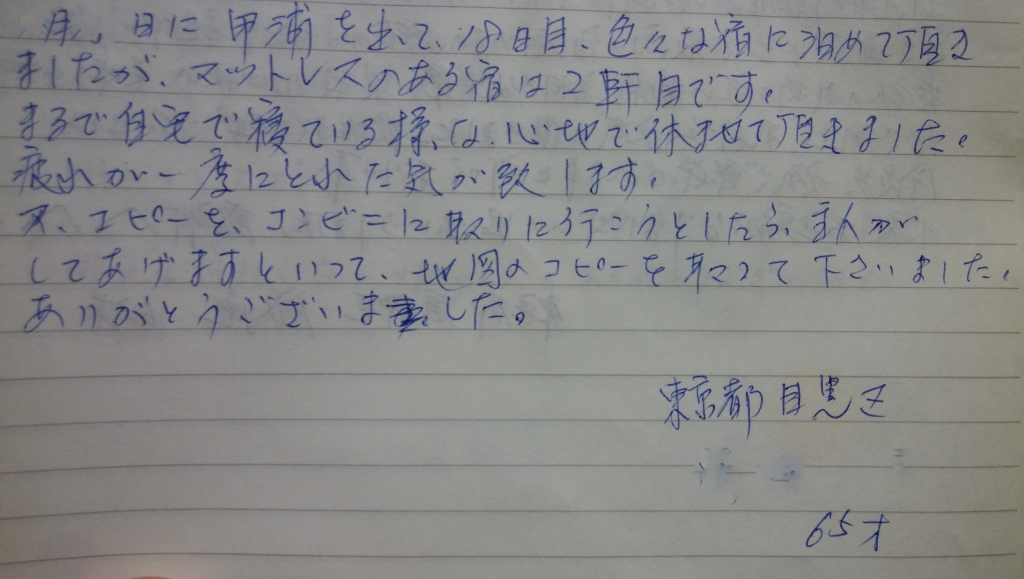 月、日に甲浦を出て、18日目、色々な宿に泊めて頂き
ましたが、マットレスのある宿は2軒目です。
まるで自宅で寝ている様な心地で休ませて頂きました。
疲れが一度にとれた気が致します。
又、コピーを、コンビニに取りに行こうとしたら、主人が
してあげますといって、地図のコピーを取って下さいました。
ありがとうございました。
東京都目黒区
65才